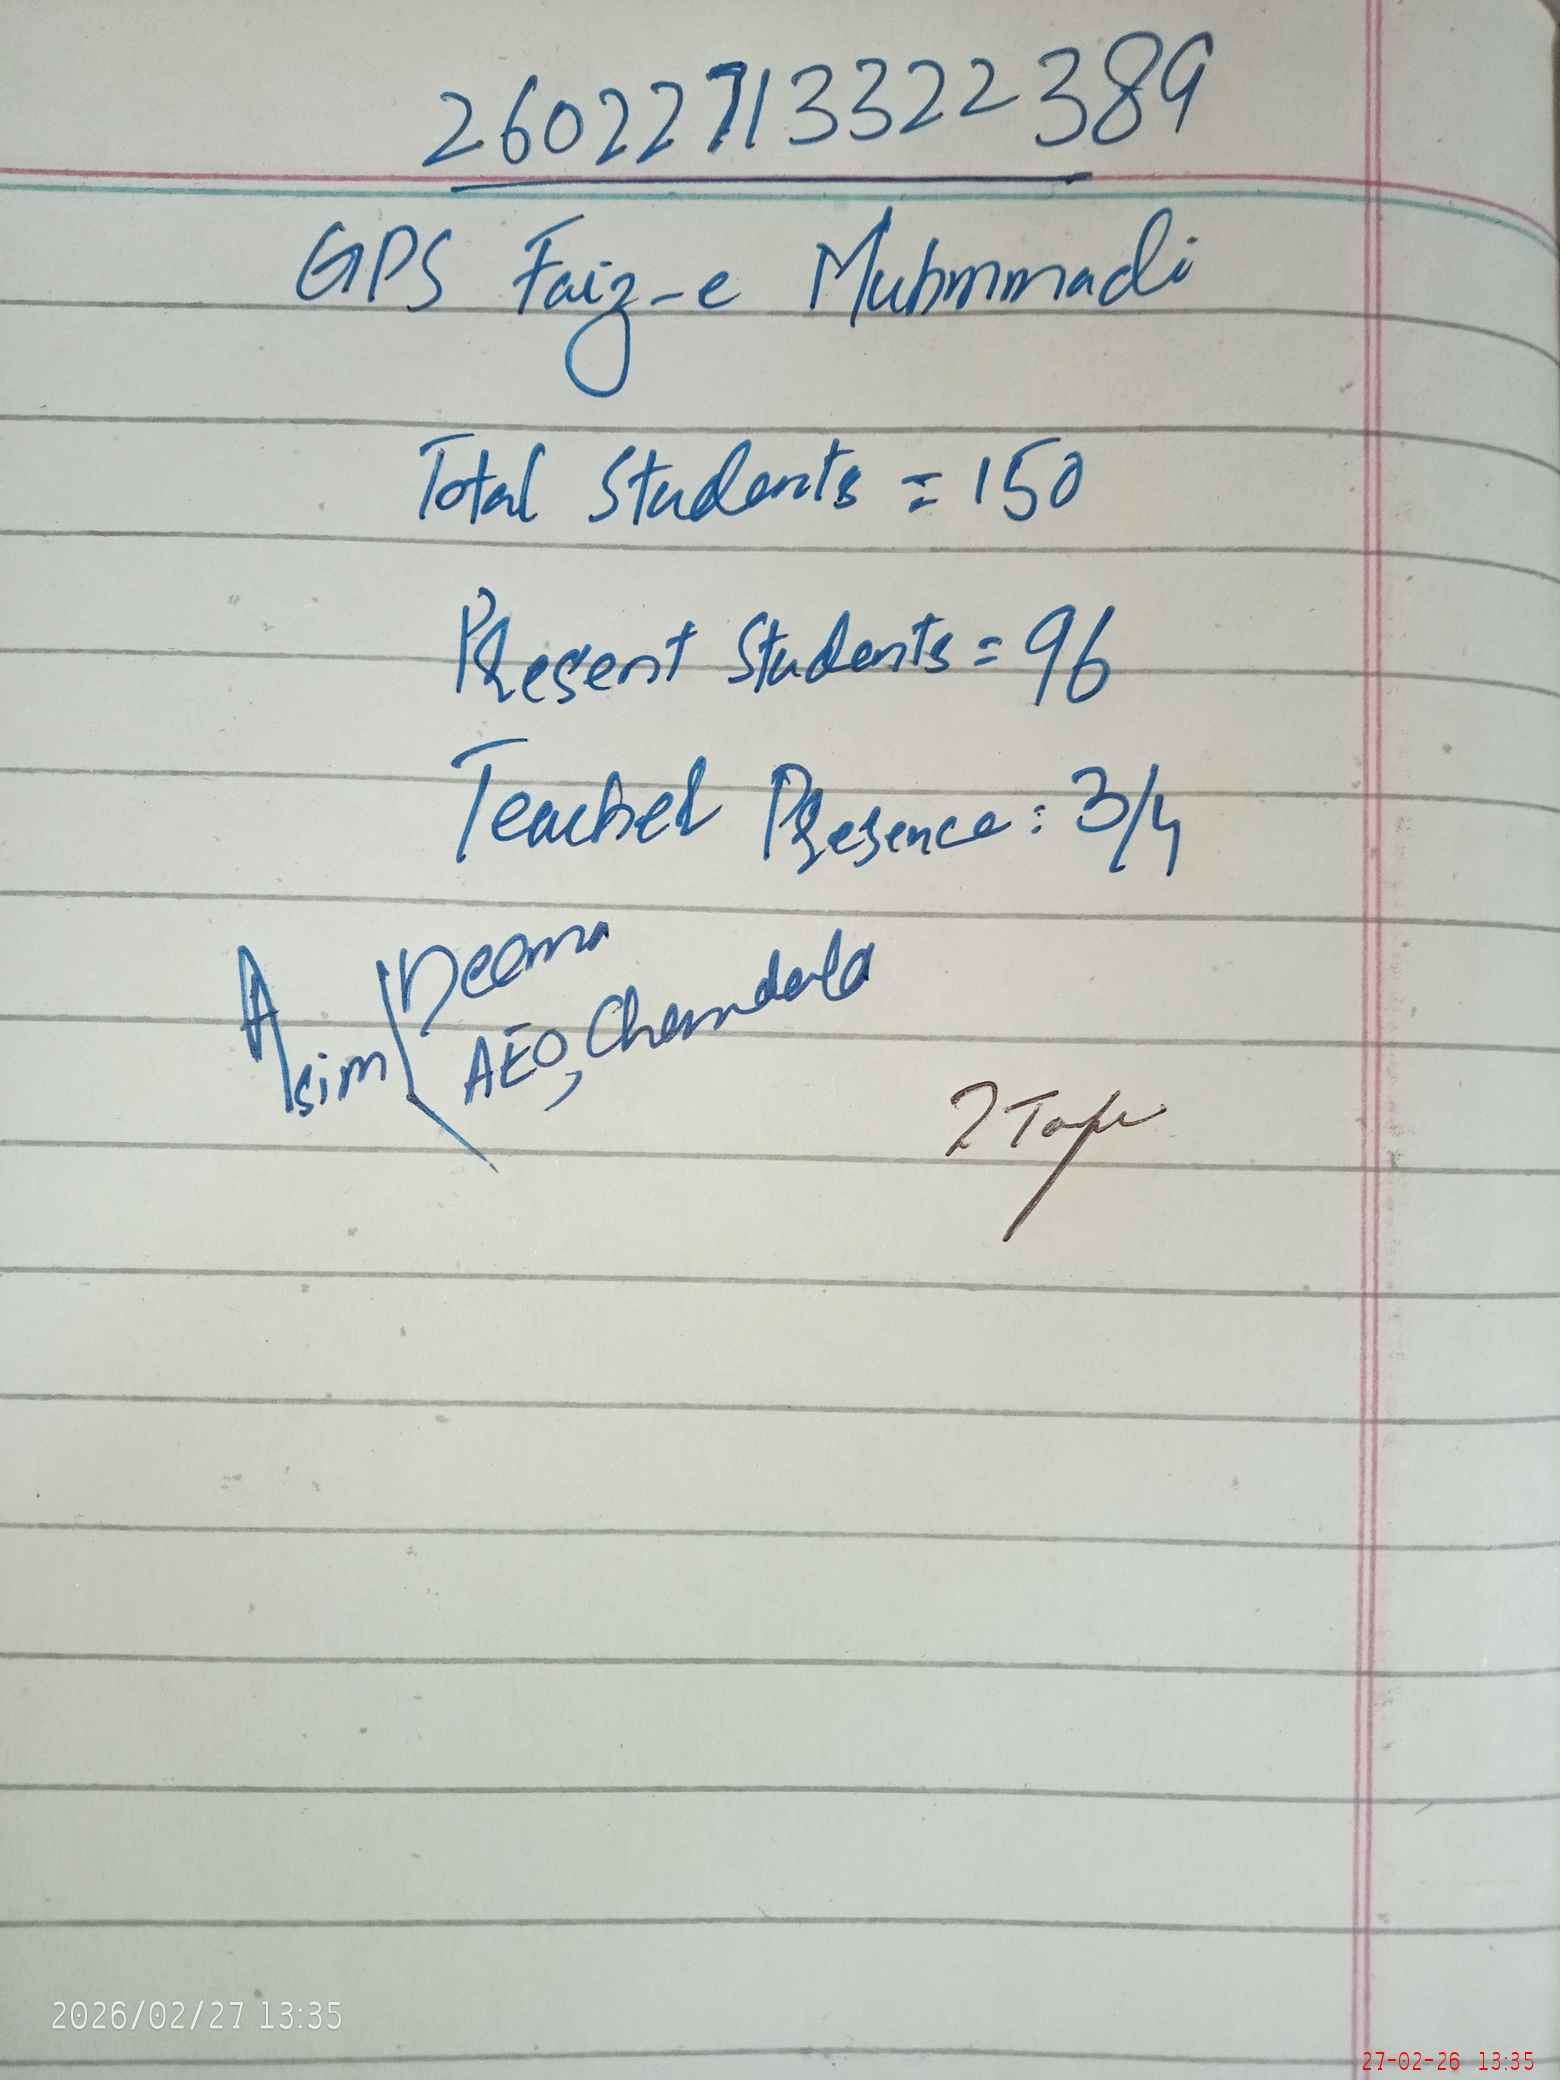 26022713322389
GPS Faiz-e Muhmmadi
Total Students = 150
Present Students = 96
Teacher Presence: 3/4
Asim
AEO,
2026/02/27 13:35
27-02-26 13:35